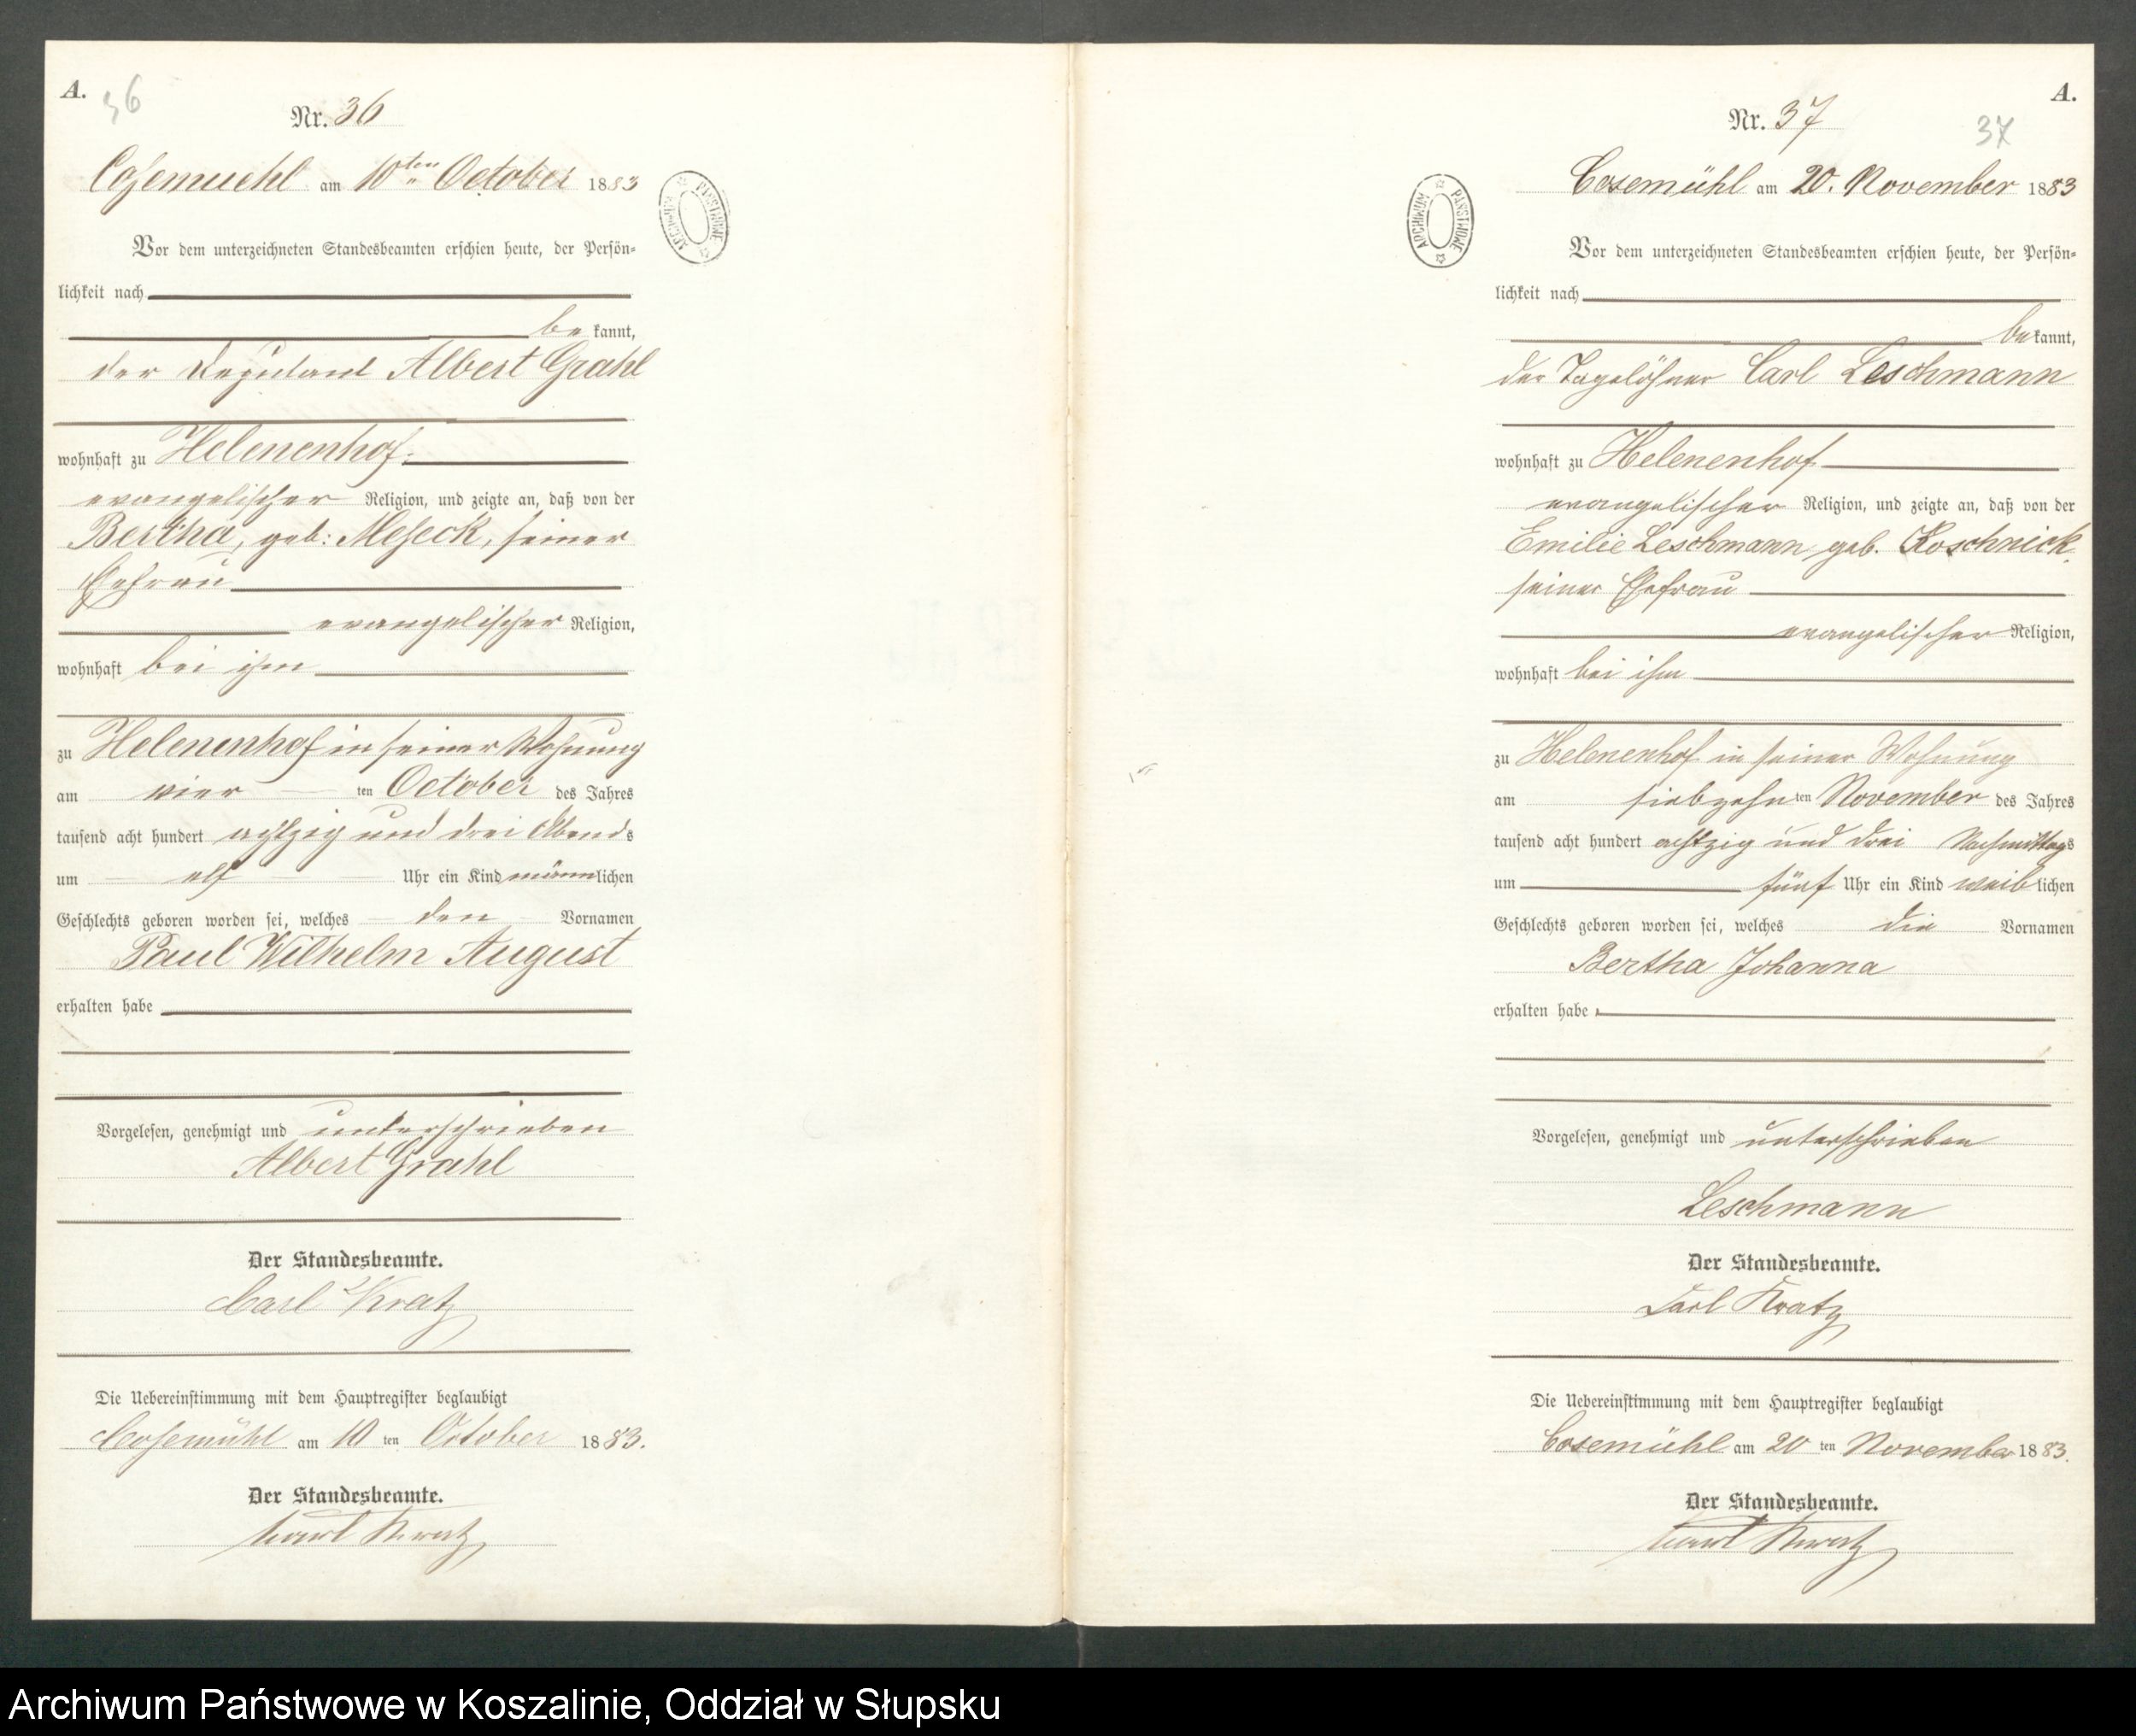 A.
36
Nr. 36
Cosemuehl am 10ten October 1883
Vor dem unterzeichneten Standesbeamten erschien heute, der Persön-
lichkeit nach
be kannt,
der Deputant Albert Grahl
wohnhaft zu Helenenhof.
evangelischer Religion, und zeigte an, daß von der
Bertha, geb: Meseck, seiner
Ehefrau
evangelischer Religion,
wohnhaft bei ihm
zu Helenenhof in seiner Wohnung
am vier ten October des Jahres
tausend acht hundert achtzig und drei Abends
um elf Uhr ein Kind männlichen
Geschlechts geboren worden sei, welches den Vornamen
Paul Wilhelm August
erhalten habe
Vorgelesen, genehmigt und unterschrieben
Albert Grahl
Der Standesbeamte.
Carl Kratz
Die Uebereinstimmung mit dem Hauptregister beglaubigt
Cosemühl am 10 ten October 1883.
Der Standesbeamte.
Carl Kratz
ARCHIWUM PAŃSTWOWE
A.
37
Nr. 37
Cosemühl am 20. November 1883
Vor dem unterzeichneten Standesbeamten erschien heute, der Persön-
lichkeit nach
be kannt,
der Tagelöhner Carl Leschmann
wohnhaft zu Helenenhof
evangelischer Religion, und zeigte an, daß von der
Emilie Leschmann geb. Koschnick,
seiner Ehefrau
evangelischer Religion,
wohnhaft bei ihm
zu Helenenhof in seiner Wohnung
am siebzehn ten November des Jahres
tausend acht hundert achtzig und drei Nachmittags
um fünf Uhr ein Kind weiblichen
Geschlechts geboren worden sei, welches die Vornamen
Bertha Johanna
erhalten habe
Vorgelesen, genehmigt und unterschrieben
Leschmann
Der Standesbeamte.
Carl Kratz
Die Uebereinstimmung mit dem Hauptregister beglaubigt
Cosemühl am 20 ten November 1883.
Der Standesbeamte.
Carl Kratz
ARCHIWUM PAŃSTWOWE
Archiwum Państwowe w Koszalinie, Oddział w Słupsku